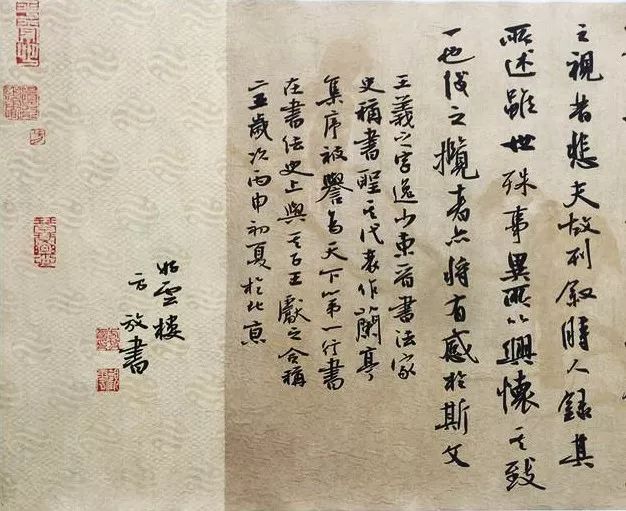 之視昔悲夫故列叙時人録其
所述雖世殊事異所以興懷其致
一也後之攬者亦將有感於斯文
王羲之字逸少東晉書法家
史稱書聖其代表作蘭亭
集序被譽為天下第一行書
在書法史上與其子王獻之合稱
二王歲次丙申初夏於北京
如雲樓
方放書